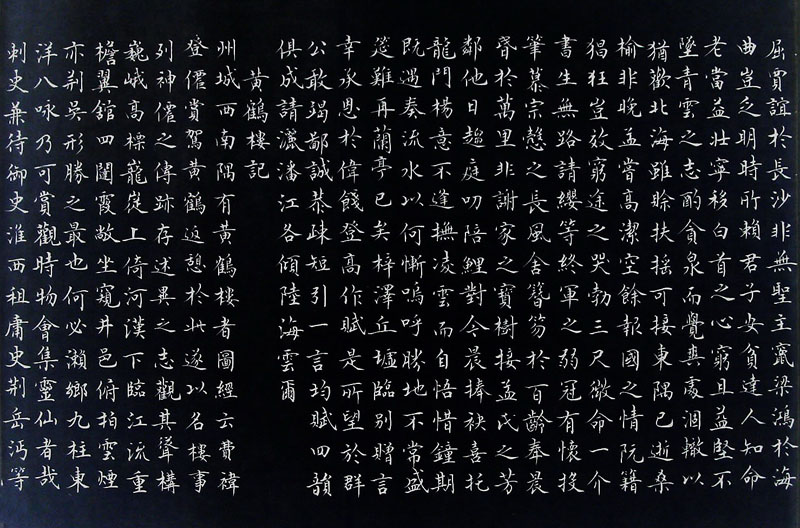 屈賈誼於長沙非無聖主竄梁鴻於海
曲豈乏明時所賴君子安貧達人知命
老當益壯寧移白首之心窮且益堅不
墜青雲之志酌貪泉而覺爽處涸轍以
猶歡北海雖賒扶搖可接東隅已逝桑
榆非晚孟嘗高潔空餘報國之情阮籍
猖狂豈效窮途之哭勃三尺微命一介
書生無路請纓等終軍之弱冠有懷投
筆慕宗愨之長風舍簪笏於百齡奉晨
昏於萬里非謝家之寶樹接孟氏之芳
鄰他日趨庭叨陪鯉對今晨捧袂喜托
龍門楊意不逢撫凌雲而自悟惜鐘期
既遇奏流水以何慚嗚呼勝地不常盛
筵難再蘭亭已矣梓澤丘墟臨別贈言
幸承恩於偉餞登高作賦是所望於群
公敢竭鄙誠恭疎短引一言均賦四韻
俱成請灑潘江各傾陸海雲爾
黃鶴樓記
州城西南隅有黃鶴樓者圖經云費禕
登僊賞駕黃鶴返憩於此遂以名樓事
列神僊之傳跡存述異之志觀其聳構
巍峨高標巃嵸上倚河漢下臨江流重
檐翼舘四闥霞敞坐窺井邑俯拍雲煙
亦荆吳形勝之最也何必瀨鄉九柱東
洋八咏乃可賞觀時物會集靈仙者哉
刺史兼待御史淮西祖庸史荆岳沔等